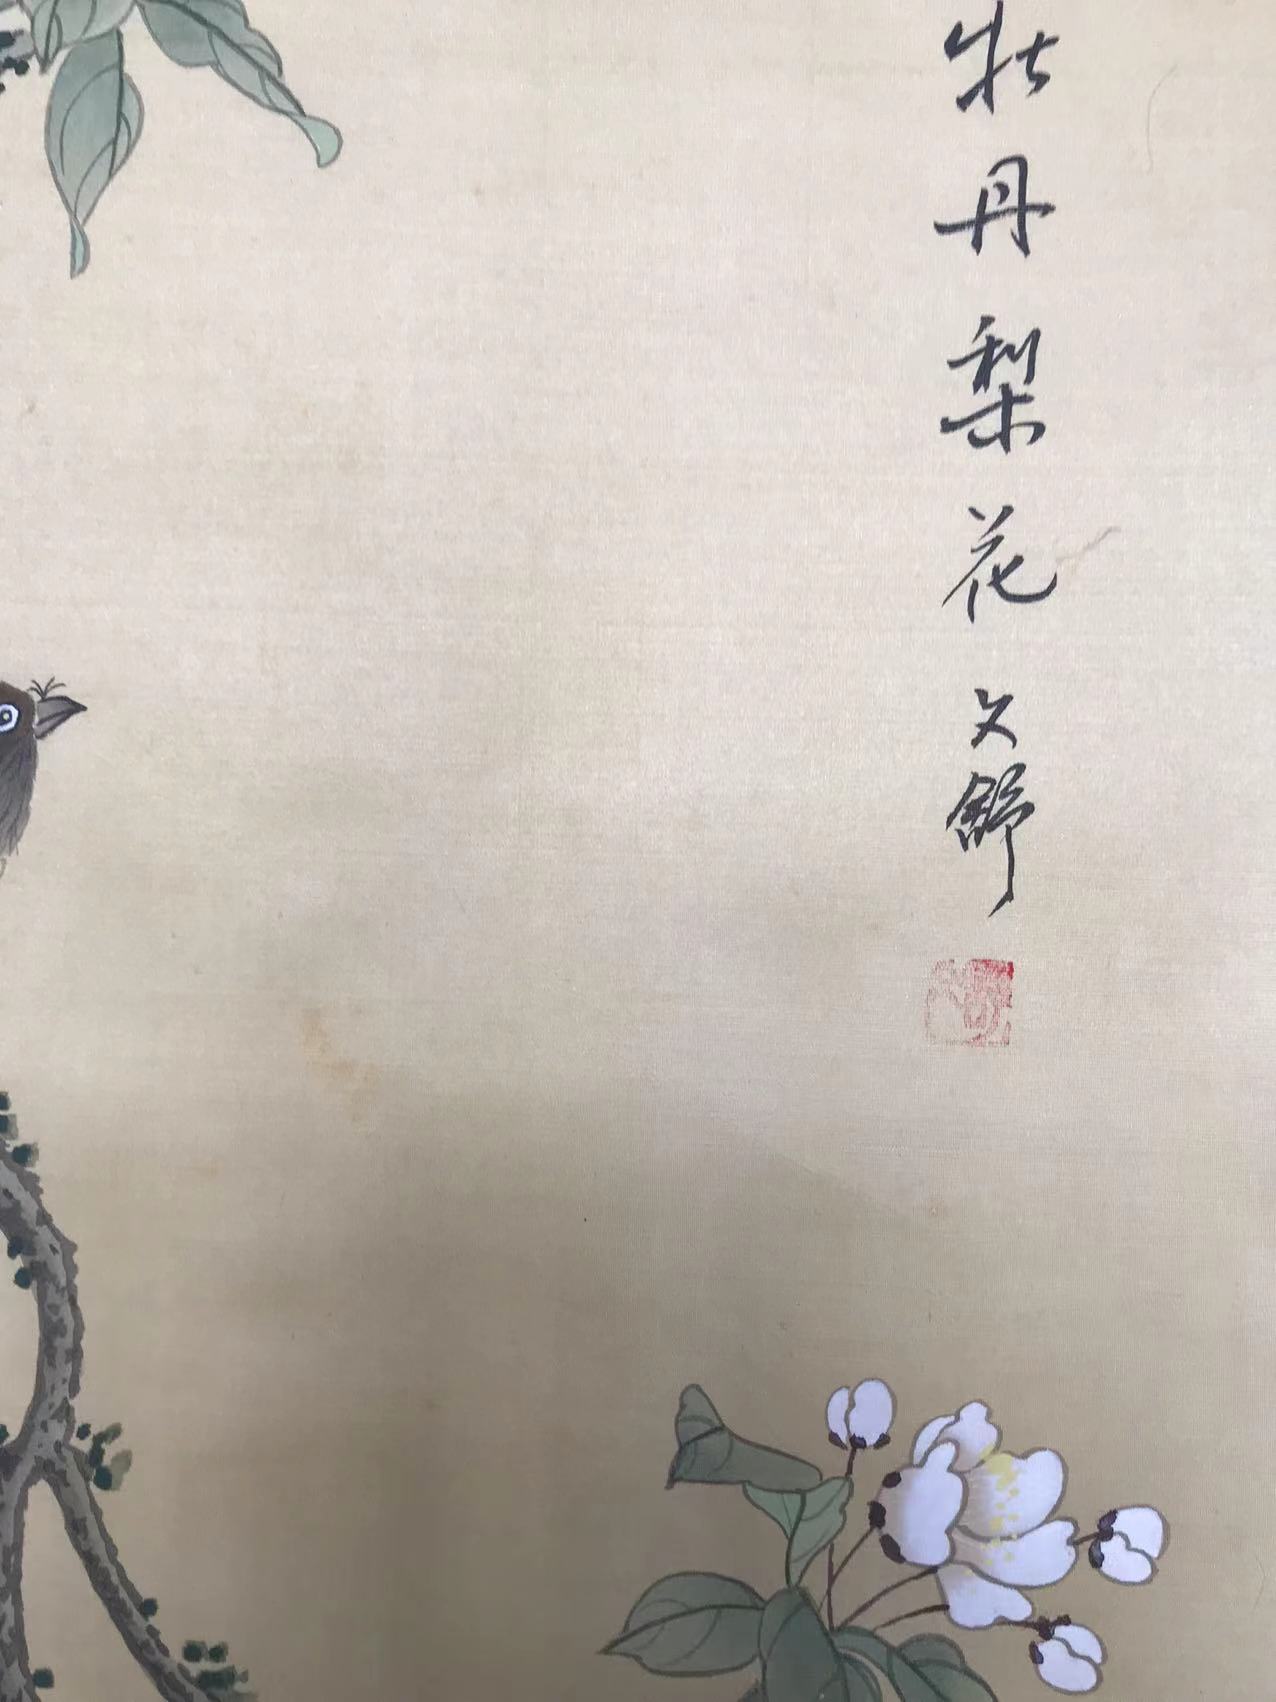 牡丹梨花 文舒